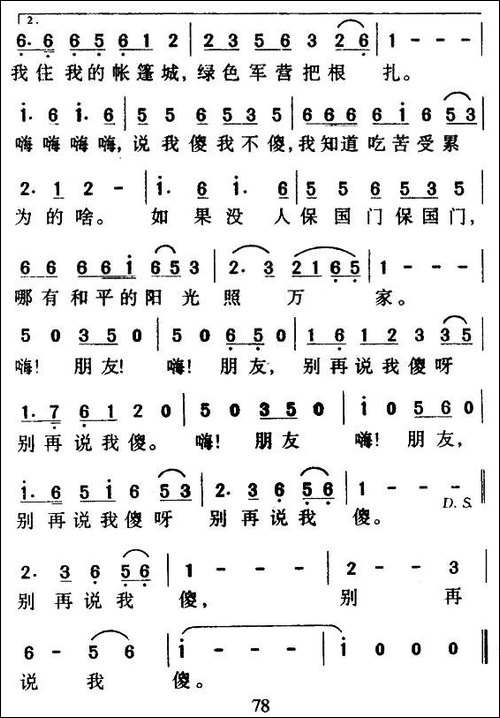 2.
6. 6 6 5 6 1 2 | 2 3 5 6 3 2 6 | 1 - - - |
我住我的帐篷城,绿色军营把根 扎。
i. 6 i. 6 | 5 5 6 5 3 5 | 6 6 6 6 i 6 5 3 |
嗨嗨嗨嗨,说我傻我不傻,我知道吃苦受累
2. 1 2 - | i. 6 i. 6 | 5 5 6 5 3 5 |
为的啥。 如果没 人保国门保国门,
6 6 6 6 i 6 5 3 | 2. 3 2 1 6 5 | 1 - - - |
哪有和平的阳光照 万 家。
5 0 3 5 0 | 5 0 6 5 0 | 1 6 1 2 3 3 5 |
嗨! 朋友! 嗨! 朋友, 别再说我傻呀
1. 7 6 1 2 0 | 5 0 3 5 0 | i 0 5 6 0 |
别再说我傻。 嗨! 朋友 嗨! 朋友,
i. 6 5 i 6 5 3 | 2. 3 6 5 6 | 1 - - - ‖
别再说我傻呀 别再说我 傻。 D.S.
2. 3 6 5 6 | 1 - - - | 2 - - 3 |
别 再说我 傻, 别 再
6 - 5 6 | i - - - | i 0 0 0 ‖
说 我 傻。
78